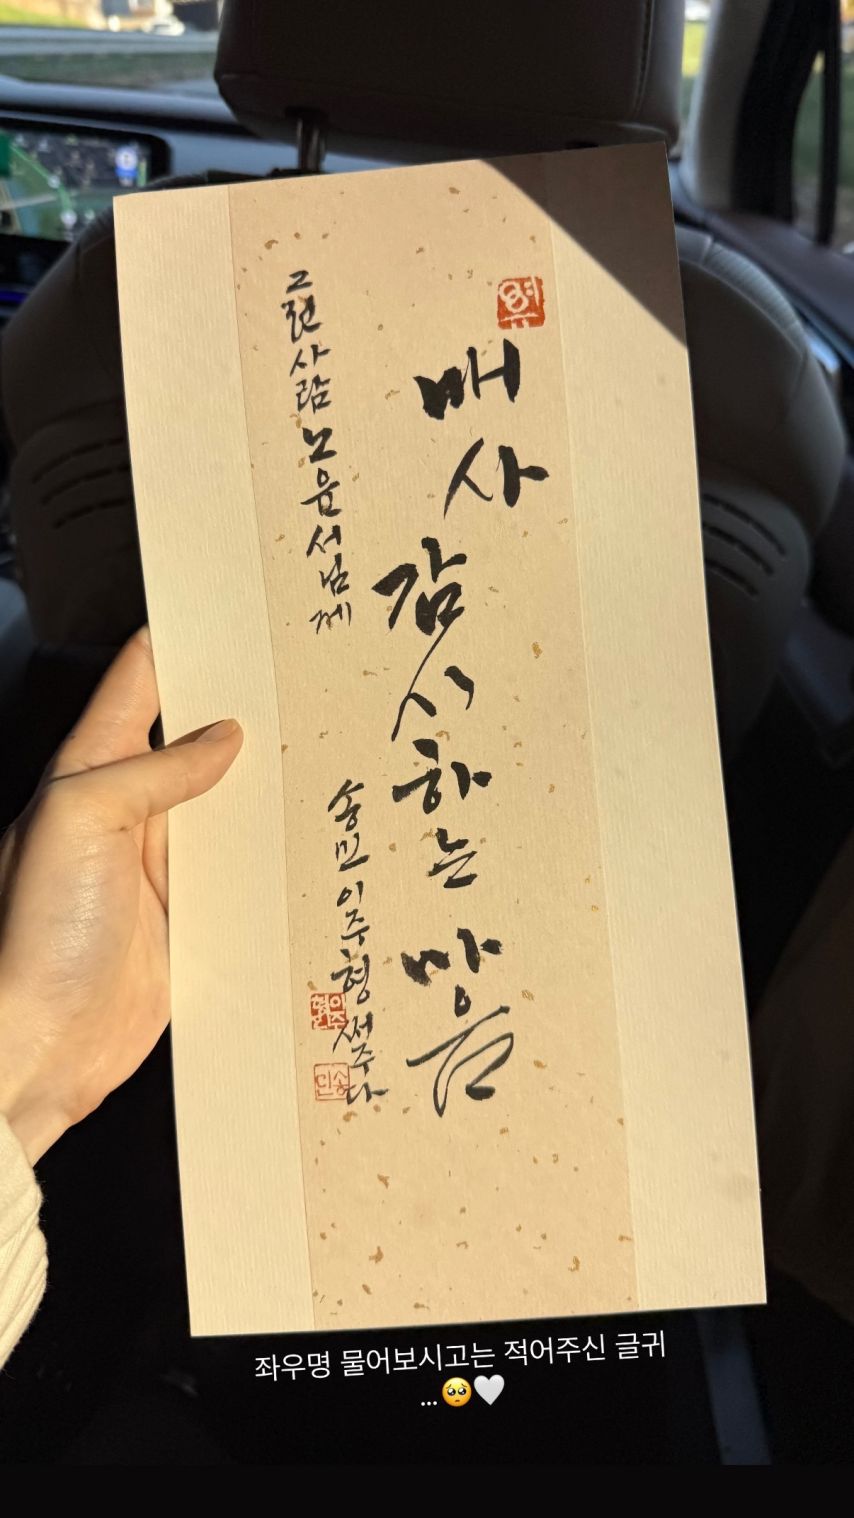 매사 감사하는 마음
그런 사람 노윤서님께
송민 이주형 써주다
이주형
송민
좌우명 물어보시고는 적어주신 글귀
...🥺🤍